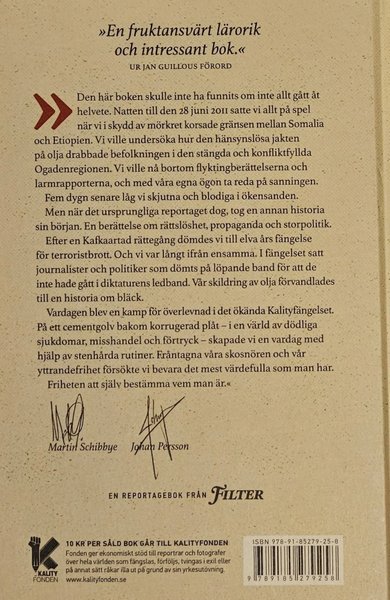 »En fruktansvärt lärorik
och intressant bok.«
UR JAN GUILLOUS FÖRORD
Den här boken skulle inte ha funnits om inte allt gått åt
helvete. Natten till den 28 juni 2011 satte vi allt på spel
när vi i skydd av mörkret korsade gränsen mellan Somalia
och Etiopien. Vi ville undersöka hur den hänsynslösa jakten
på olja drabbade befolkningen i den stängda och konfliktfyllda
Ogadenregionen. Vi ville nå bortom flyktingberättelserna och
larmrapporterna, och med våra egna ögon ta reda på sanningen.
Fem dygn senare låg vi skjutna och blodiga i ökensanden.
Men när det ursprungliga reportaget dog, tog en annan historia
sin början. En berättelse om rättslöshet, propaganda och storpolitik.
Efter en Kafkaartad rättegång dömdes vi till elva års fängelse
för terroristbrott. Och vi var långt ifrån ensamma. I fängelset satt
journalister och politiker som dömts på löpande band för att de
inte hade gått i diktaturens ledband. Vår skildring av olja förvandlades
till en historia om bläck.
Vardagen blev en kamp för överlevnad i det ökända Kalityfängelset.
På ett cementgolv bakom korrugerad plåt – i en värld av dödliga
sjukdomar, misshandel och förtryck – skapade vi en vardag med
hjälp av stenhårda rutiner. Fråntagna våra skosnören och vår
yttrandefrihet försökte vi bevara det mest värdefulla som man har.
Friheten att själv bestämma vem man är.«
Martin Schibbye Johan Persson
EN REPORTAGEBOK FRÅN FILTER
KALITY
FONDEN
10 KR PER SÅLD BOK GÅR TILL KALITYFONDEN
Fonden ger ekonomiskt stöd till reportrar och fotografer
över hela världen som fängslas, förföljs, tvingas i exil eller
på annat sätt råkar illa ut på grund av sin yrkesutövning.
www.kalityfonden.se
ISBN 978-91-85279-25-8
9 789185 279258